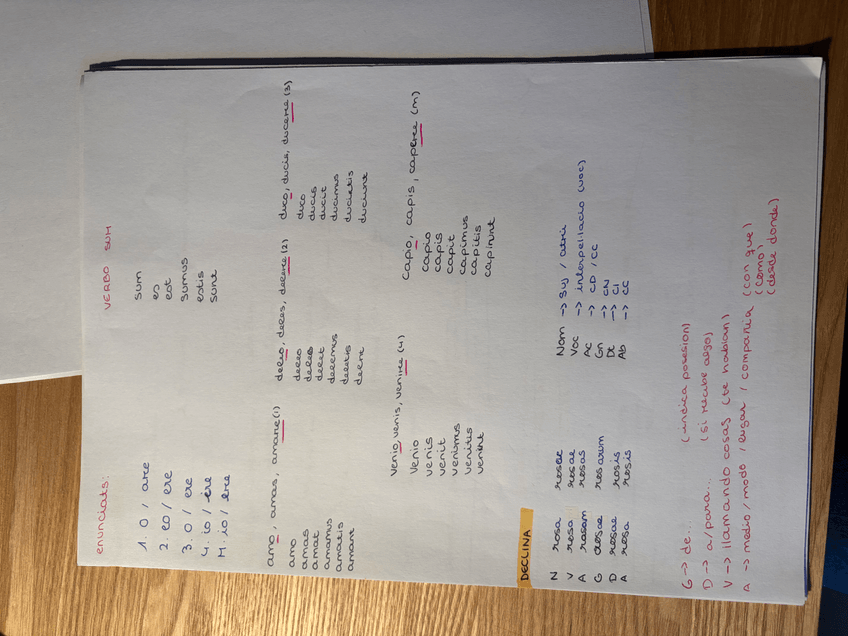 enunciats:
1. o / are
2. eo / ere
3. o / ere
4. io / ire
M: io / ere
VERBO SUM
sum
es
est
sumus
estis
sunt
amo, amas, amare (1)
amo
amas
amat
amamus
amatis
amant
deleo, deles, delere (2)
deleo
deles
delet
delemus
deletis
delent
duco, ducis, ducere (3)
duco
ducis
ducit
ducimus
ducitis
ducunt
Venio, venis, venire (4)
Venio
venis
venit
venimus
venitis
venint
capio, capis, capere (M)
capio
capis
capit
capimus
capitis
DECLINA
N rosa rosae
V rosa rosae
A rosam rosas
G rosae rosarum
D rosae rosis
A rosa rosis
Nom -> Suj / atri
Voc -> interpellacio (voc)
Ac -> CD / CC
Gn -> CN
Dt -> CI
Ab -> CC
G -> de... (indica posesion)
D -> a/para... (si recibe algo)
V -> llamando cosas (te hablan)
A -> medio / modo / lugar / compania (con que)
(como)
(desde donde)